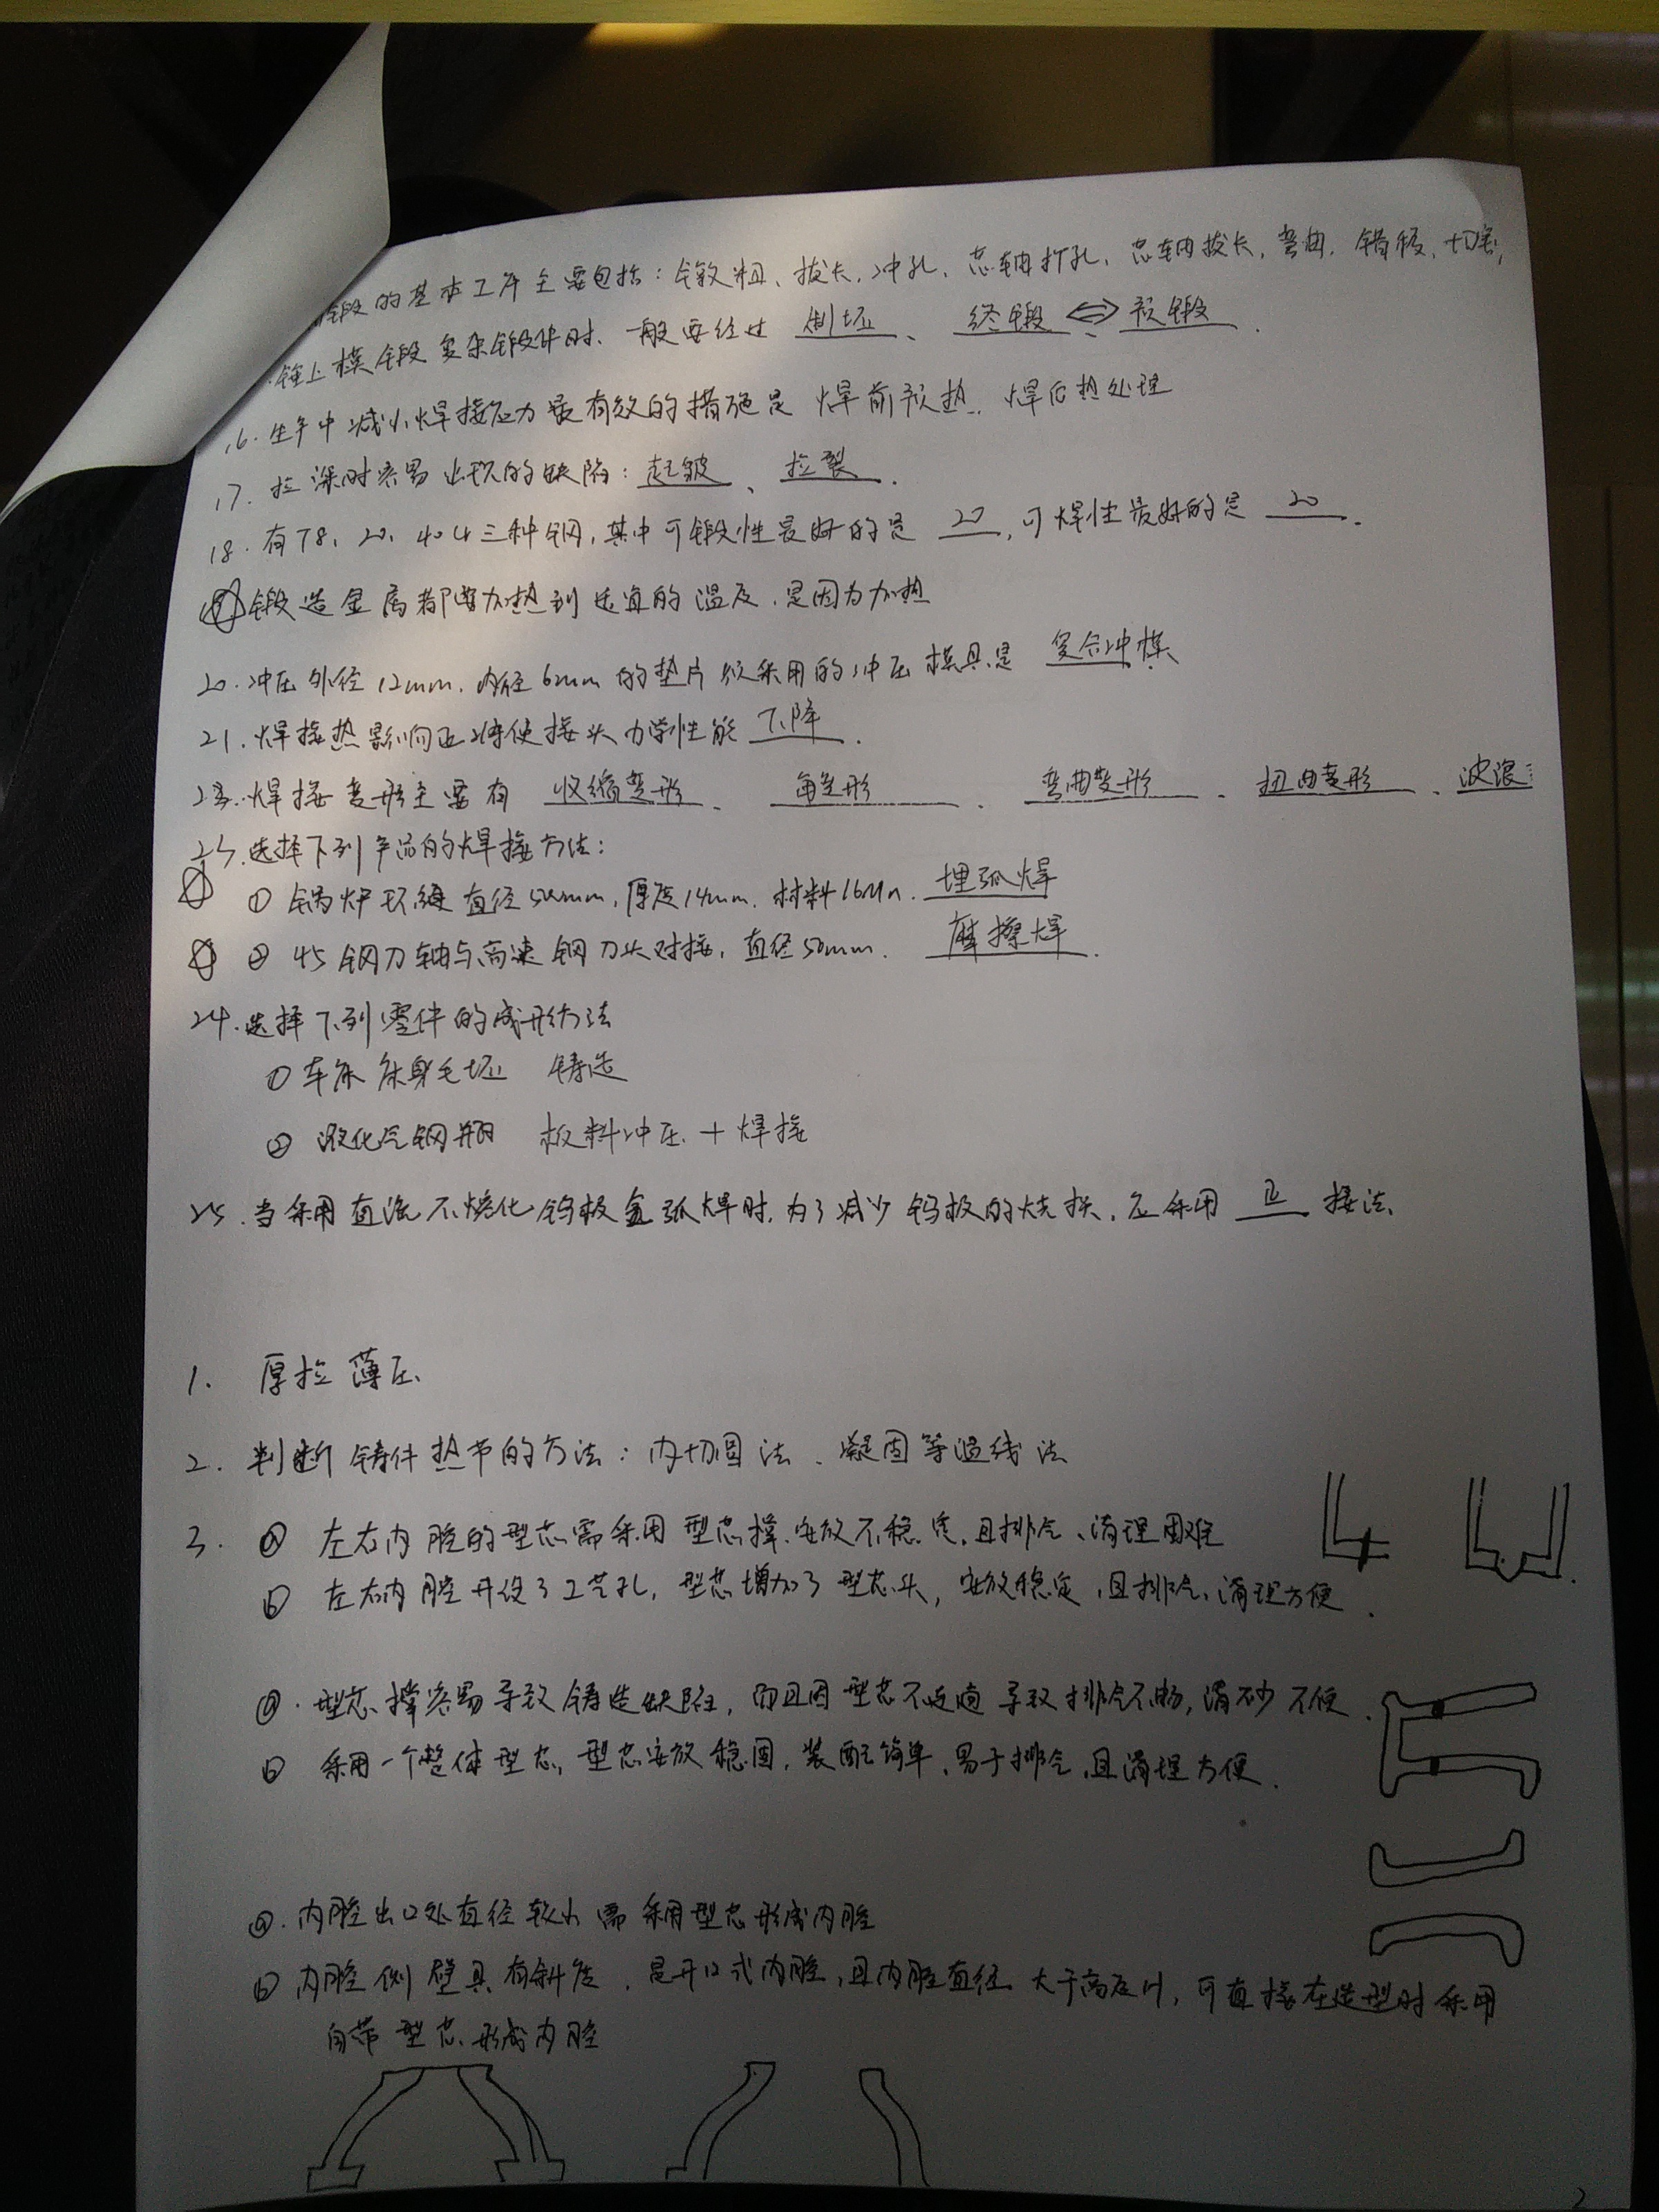 锻的基本工序主要包括：镦粗、拔长、冲孔、芯轴扩孔、芯轴拔长，弯曲，错移，切割，
锤上模锻复杂锻件时、一般要经过 制坯、终锻 ⇔ 预锻.
16. 生产中减小焊接应力最有效的措施是 焊前预热. 焊后热处理
17. 拉深时容易出现的缺陷：起皱、拉裂.
18. 有T8、20、40Cr三种钢，其中可锻性最好的是 20，可焊性最好的是 20.
锻造金属都要加热到适宜的温度，是因为加热
20. 冲压外径12mm. 内径6mm的垫片 采用的冲压模具是 复合冲模
21. 焊接热影响区将使接头力学性能 下降.
23. 焊接变形主要有 收缩变形、角变形、弯曲变形、扭曲变形、波浪
选择下列产品的焊接方法：
① 锅炉环缝 直径500mm，厚度14mm. 材料16Mn. 埋弧焊
② 45钢刀轴与高速钢刀头对接，直径50mm. 摩擦焊.
24. 选择下列零件的成形方法
① 车床床身毛坯 铸造
② 液化气钢瓶 板料冲压 + 焊接
25. 当采用直流不熔化钨极氩弧焊时，为了减少钨极的烧损，应采用 正 接法.
1. 厚拉薄压
2. 判断铸件热节的方法：内切圆法、凝固等温线法
3. ⓐ 左右内腔的型芯需采用型芯撑. 安放不稳定. 且排气、清理困难
ⓑ 左右内腔开设了工艺孔，型芯增加了型芯头，安放稳定，且排气、清理方便.
ⓐ. 型芯撑容易导致铸造缺陷，而且因型芯不连通导致排气不畅，清砂不便.
ⓑ 采用一个整体型芯，型芯安放稳固，装配简单，易于排气，且清理方便.
ⓐ. 内腔出口处直径较小需采用型芯形成内腔
ⓑ 内腔侧壁具有斜度，是开口式内腔，且内腔直径大于高度H，可直接在造型时采用
自带型芯形成内腔
2